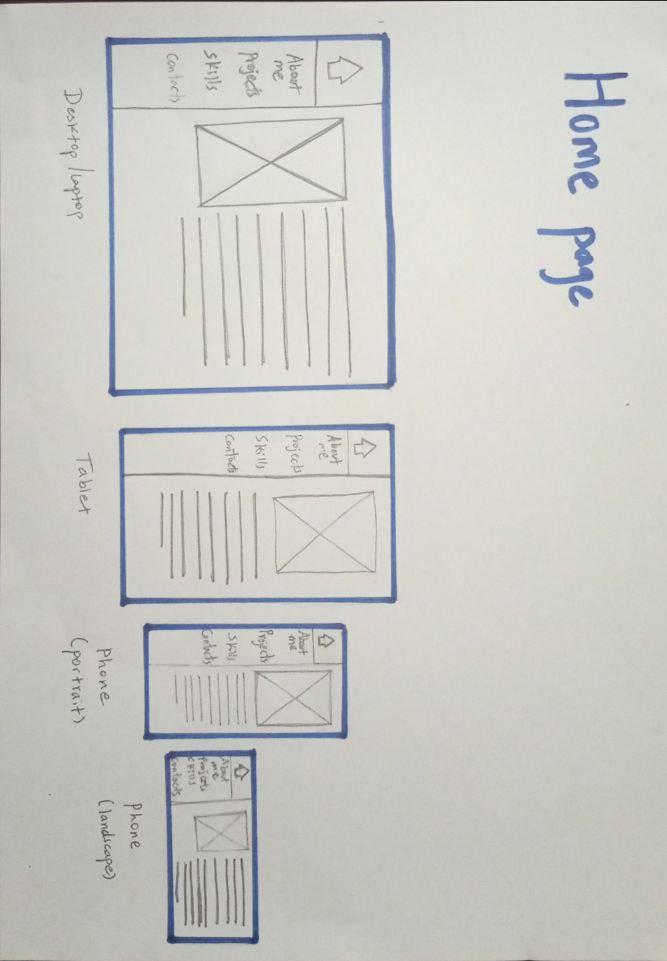 Home page
About
me
Projects
skills
Contacts
Desktop/laptop
About
me
Projects
Skills
Contacts
Tablet
About
me
Projects
skills
Contacts
phone
(portrait)
About
me
Projects
skills
Contacts
phone
(landscape)